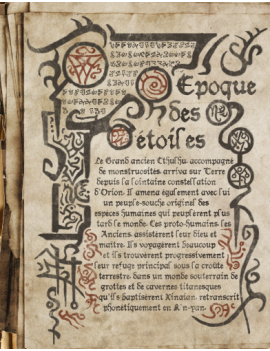 Epoque
des
étoiles
Le Grand ancien Cthulhu accompagné
de monstruosités, arriva sur Terre
depuis la lointaine constellation
d'Orion. Il amena également avec lui
un peuple-souche originel des
espèces humaines qui peuplèrent plus
tard le monde. Ces proto-humains, les
Anciens, assistèrent leur Dieu et
maître. Ils voyagèrent beaucoup
et ils trouvèrent progressivement
leur refuge principal sous la croûte
terrestre, dans un monde souterrain de
grottes et de cavernes titanesques
qu'ils baptisèrent Xinaian, retranscrit
phonétiquement en K'n-yan.